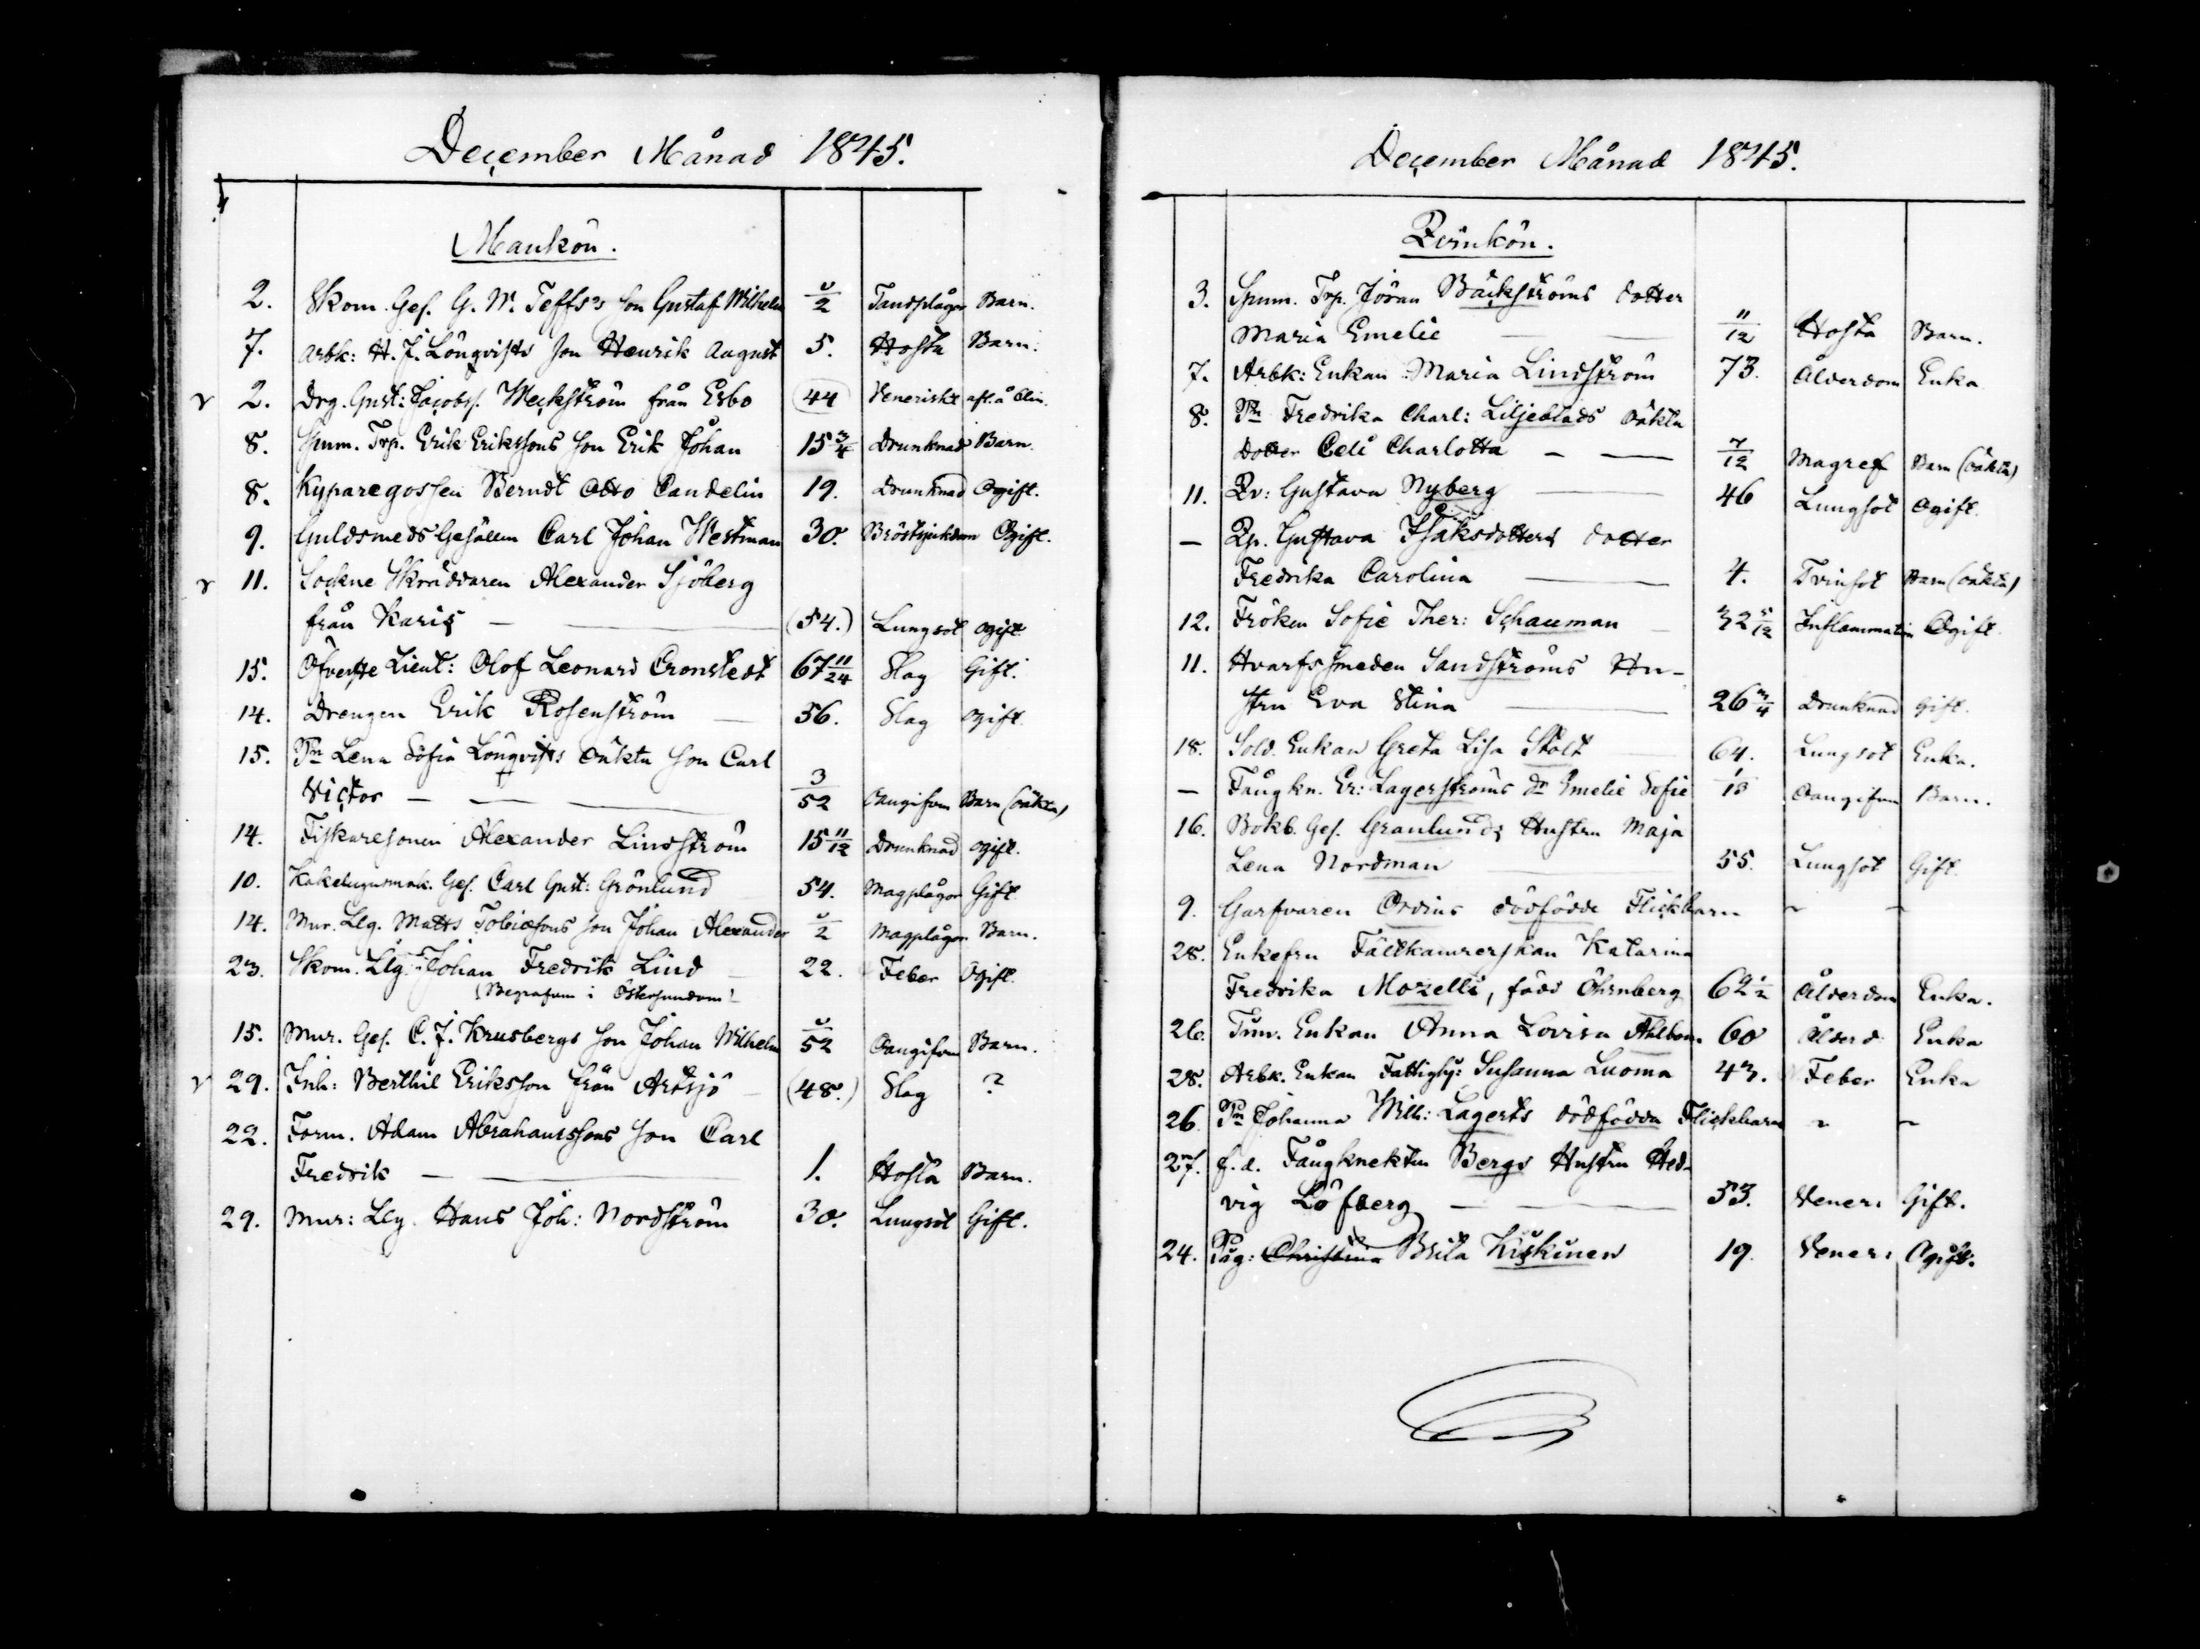 December Månad 1845.
Mankön.
2. Skom. Ges. G. W. Teffs's son Gustaf Wilhelm 2 Tandplågor Barn.
7. Arbk: H. J. Lönqvists son Henrik August 5. Hosta Barn.
2. Drg. Gust: Jacobs. Weckström från Esbo 44 Veneriskt afl. å Clin.
8. Spum. Trp. Erik Erikssons son Erik Johan 15 3/4 Drunknad Barn.
8. Kyparegossen Berndt Otto Candelin 19. Drunknad Ogift.
9. Guldsmeds Gesällen Carl Johan Westman 30. Bröstsjukdom Ogift.
11. Sockne Skräddaren Alexander Sjöberg
från Karis — (54.) Lungsot ogift
15. Öfverste Lieut: Olof Leonard Cronstedt 67 11/24 Slag Gift.
14. Drengen Erik Rosenström 56. Slag ogift
15. Pn Lena Sofia Lönqvists oäkta son Carl
Victor — 3/52 Oangifven Barn (oäkta)
14. Fiskaresonen Alexander Lindström 15 11/12 Drunknad ogift.
10. Kakelugnsmak. Ges. Carl Gust: Grönlund 54. Magplågor Gift
14. Mur. Llg. Matts Tobiasons son Johan Alexander 2 Magplågor Barn.
23. Skom. Llg. Johan Fredrik Lind 22. Feber Ogift.
(Begrafven i Östersundom)
15. Mur. Ges. C. J. Krusbergs son Johan Wilhelm 52 Oangifven Barn.
29. Inh: Berthil Eriksson från Artsjö (48.) Slag ?
22. Form. Adam Abrahamssons son Carl
Fredrik — 1. Hosta Barn.
29. Mur: Llg. Hans Joh: Nordström 30. Lungsot Gift.
December Månad 1845.
Qvinkön.
3. Spum. Trp. Jöran Bäckströms dotter
Maria Emelie — 11/12 Hosta Barn.
7. Arbk: Enkan Maria Lindström 73. Ålderdom Enka
8. Pn Fredrika Charl: Liljeblads oäkta
dotter Celi Charlotta — 7/12 Magref Barn (oäkta)
11. Qv: Gustava Nyberg — 46 Lungsot ogift.
— Qp. Gustava Isaksdotters dotter
Fredrika Carolina — 4. Tvinsot Barn (oäkta)
12. Fröken Sofie Ther: Schauman 32 5/12 Inflammation Ogift
11. Hvarfs Smeden Sandströms Hu-
stru Eva Stina — 26 3/4 Drunknad Gift.
18. Sold. Enkan Greta Lisa Stolt 64. Lungsot Enka.
— Fångkn. Er: Lagerströms dr Emelie Sofie Oangifven Barn.
16. Bokb. Ges. Granlunds Hustru Maja
Lena Nordman 55. Lungsot Gift
9. Garfvaren Ordins dödfödde Flickbarn " "
28. Enkefru Fältkamrerskan Katarina
Fredrika Mozelli, född Öhrnberg 62 1/2 Ålderdom Enka.
26. Tim. Enkan Anna Lovisa Ahlbom 60 Ålderd. Enka
28. Arbk. Enkan Fattighj: Susanna Luoma 43. Feber Enka
26 Pn Johanna Wilh: Lagerts dödfödda Flickbarn " "
27. f.d. Fångknekten Bergs Hustru Hed-
vig Löfberg — 53. Vener: Gift.
24. Pig: Christina Brita Kiskinen 19. Vener: Ogift.